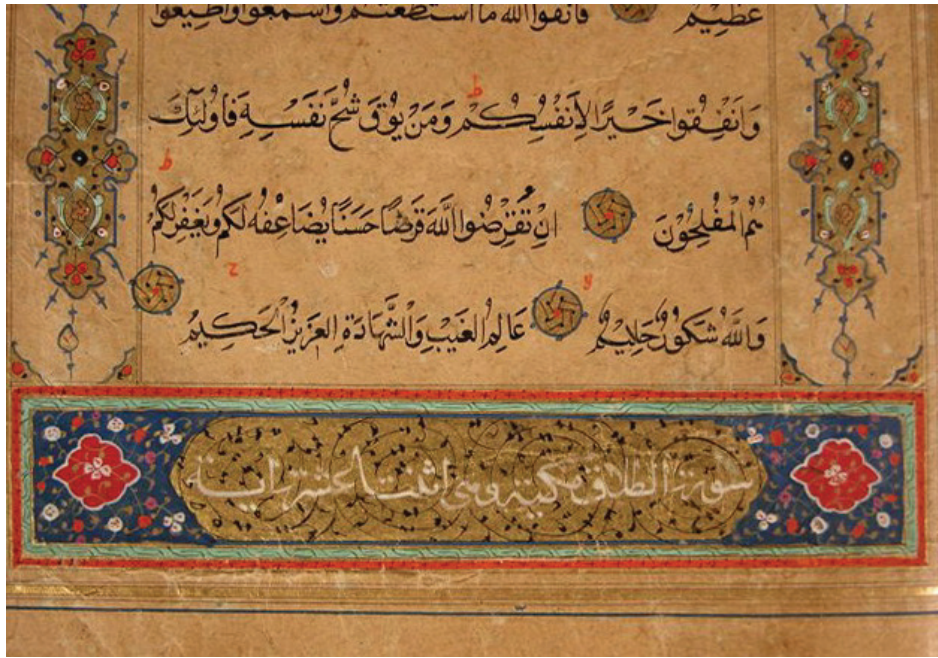 عَظِيْمٌ فَاتَّقُوا اللّٰهَ مَا اسْتَطَعْتُمْ وَاسْمَعُوا وَاَطِيْعُوا
وَاَنْفِقُوا خَيْرًا لِاَنْفُسِكُمْ ط وَمَنْ يُوْقَ شُحَّ نَفْسِهٖ فَاُولٰئِكَ
هُمُ الْمُفْلِحُوْنَ اِنْ تُقْرِضُوا اللّٰهَ قَرْضًا حَسَنًا يُضَاعِفْهُ لَكُمْ وَيَغْفِرْ لَكُمْ ط
وَاللّٰهُ شَكُوْرٌ حَلِيْمٌ لا عَالِمُ الْغَيْبِ وَالشَّهَادَةِ الْعَزِيْزُ الْحَكِيْمُ ح
سورة الطلاق مكية وهي اثنتا عشر اية